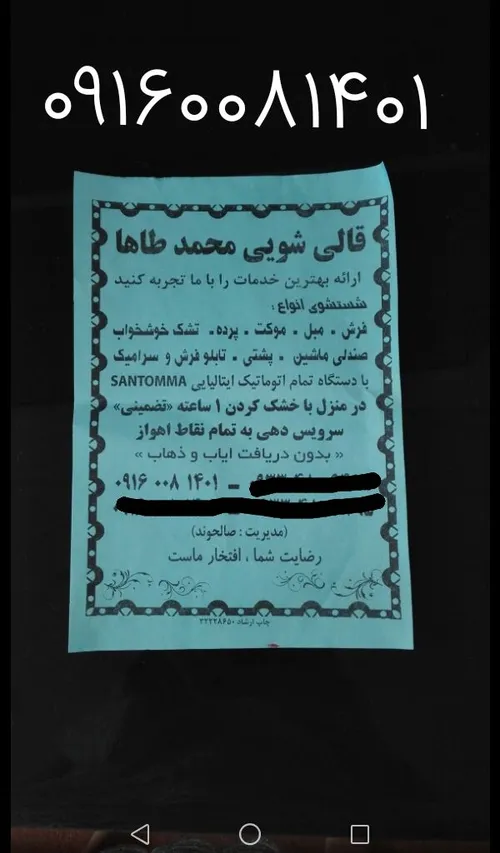 ۰۹۱۶۰۰۸۱۴۰۱
قالی شویی محمد طاها
ارائه بهترین خدمات را با ما تجربه کنید
شستشوی انواع :
فرش ـ مبل ـ موکت ـ پرده ـ تشک خوشخواب
صندلی ماشین ـ پشتی ـ تابلو فرش و سرامیک
با دستگاه تمام اتوماتیک ایتالیایی SANTOMMA
در منزل با خشک کردن ۱ ساعته «تضمینی»
سرویس دهی به تمام نقاط اهواز
« بدون دریافت ایاب و ذهاب »
۰۹۱۶ ۰۰۸ ۱۴۰۱ ـ
(مدیریت : صالحوند)
رضایت شما ، افتخار ماست
چاپ ارشاد ۳۲۲۲۸۶۵۰